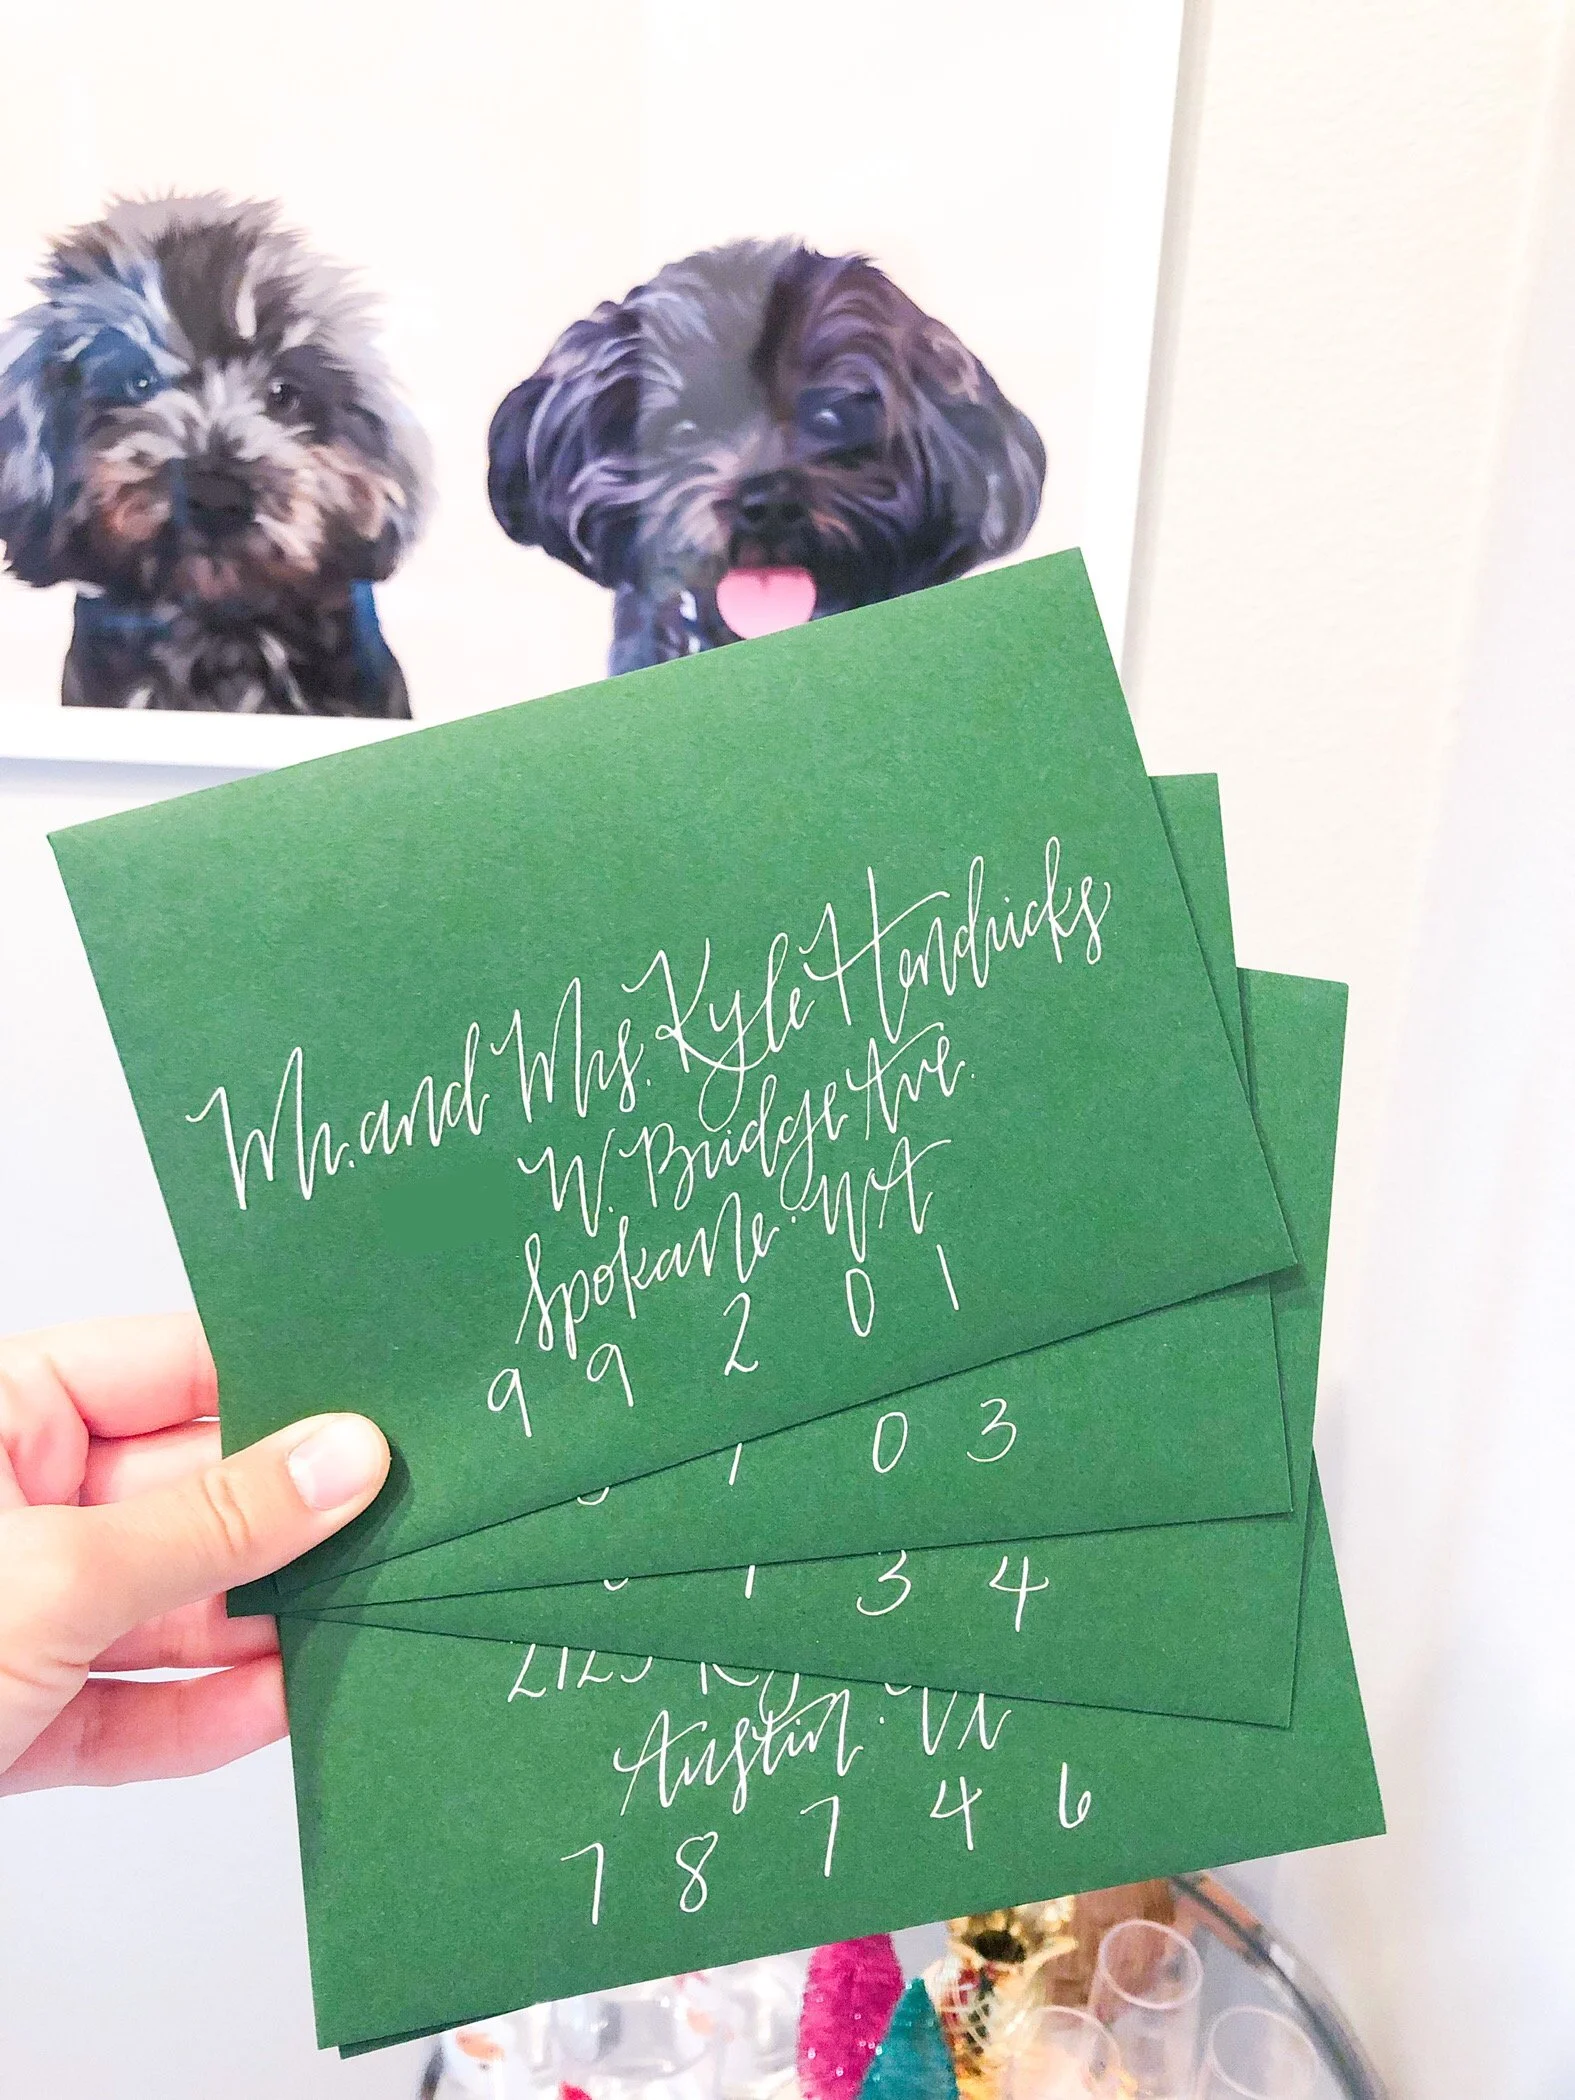 Mr. and Mrs. Kyle Hendricks
W. Bridge Ave.
Spokane. WA
9 9 2 0 1
1 0 3
1 3 4
Austin. TX
7 8 7 4 6